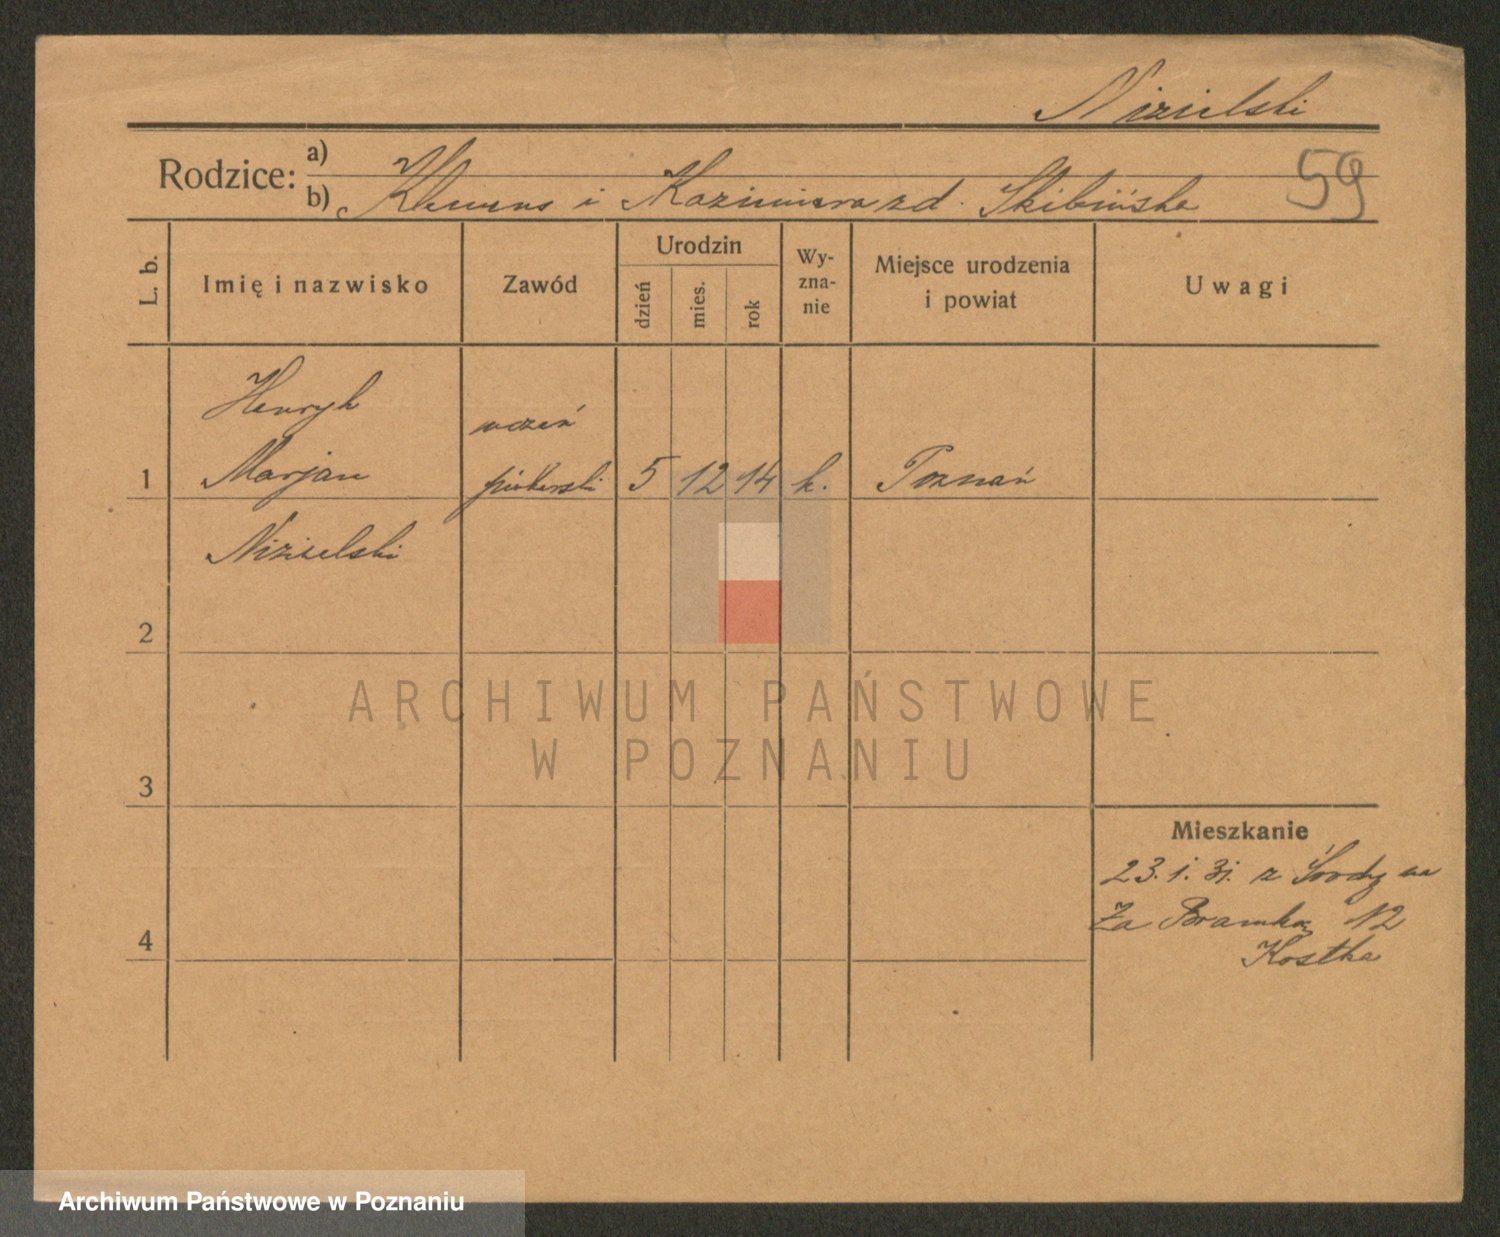 Nizielski
Rodzice: a)
b) Klemens i Kazimiera z d. Skibińska
59
L. b.
Imię i nazwisko
Zawód
Urodzin
dzień
mies.
rok
Wy-
zna-
nie
Miejsce urodzenia
i powiat
Uwagi
Henryk
uczeń
1 Marjan piekarski 5 12 14 k. Poznań
Nizielski
2
3
4
Mieszkanie
23. 1. 31. z Środy na
Za Bramką 12
Kostka
ARCHIWUM PAŃSTWOWE
W POZNANIU
Archiwum Państwowe w Poznaniu